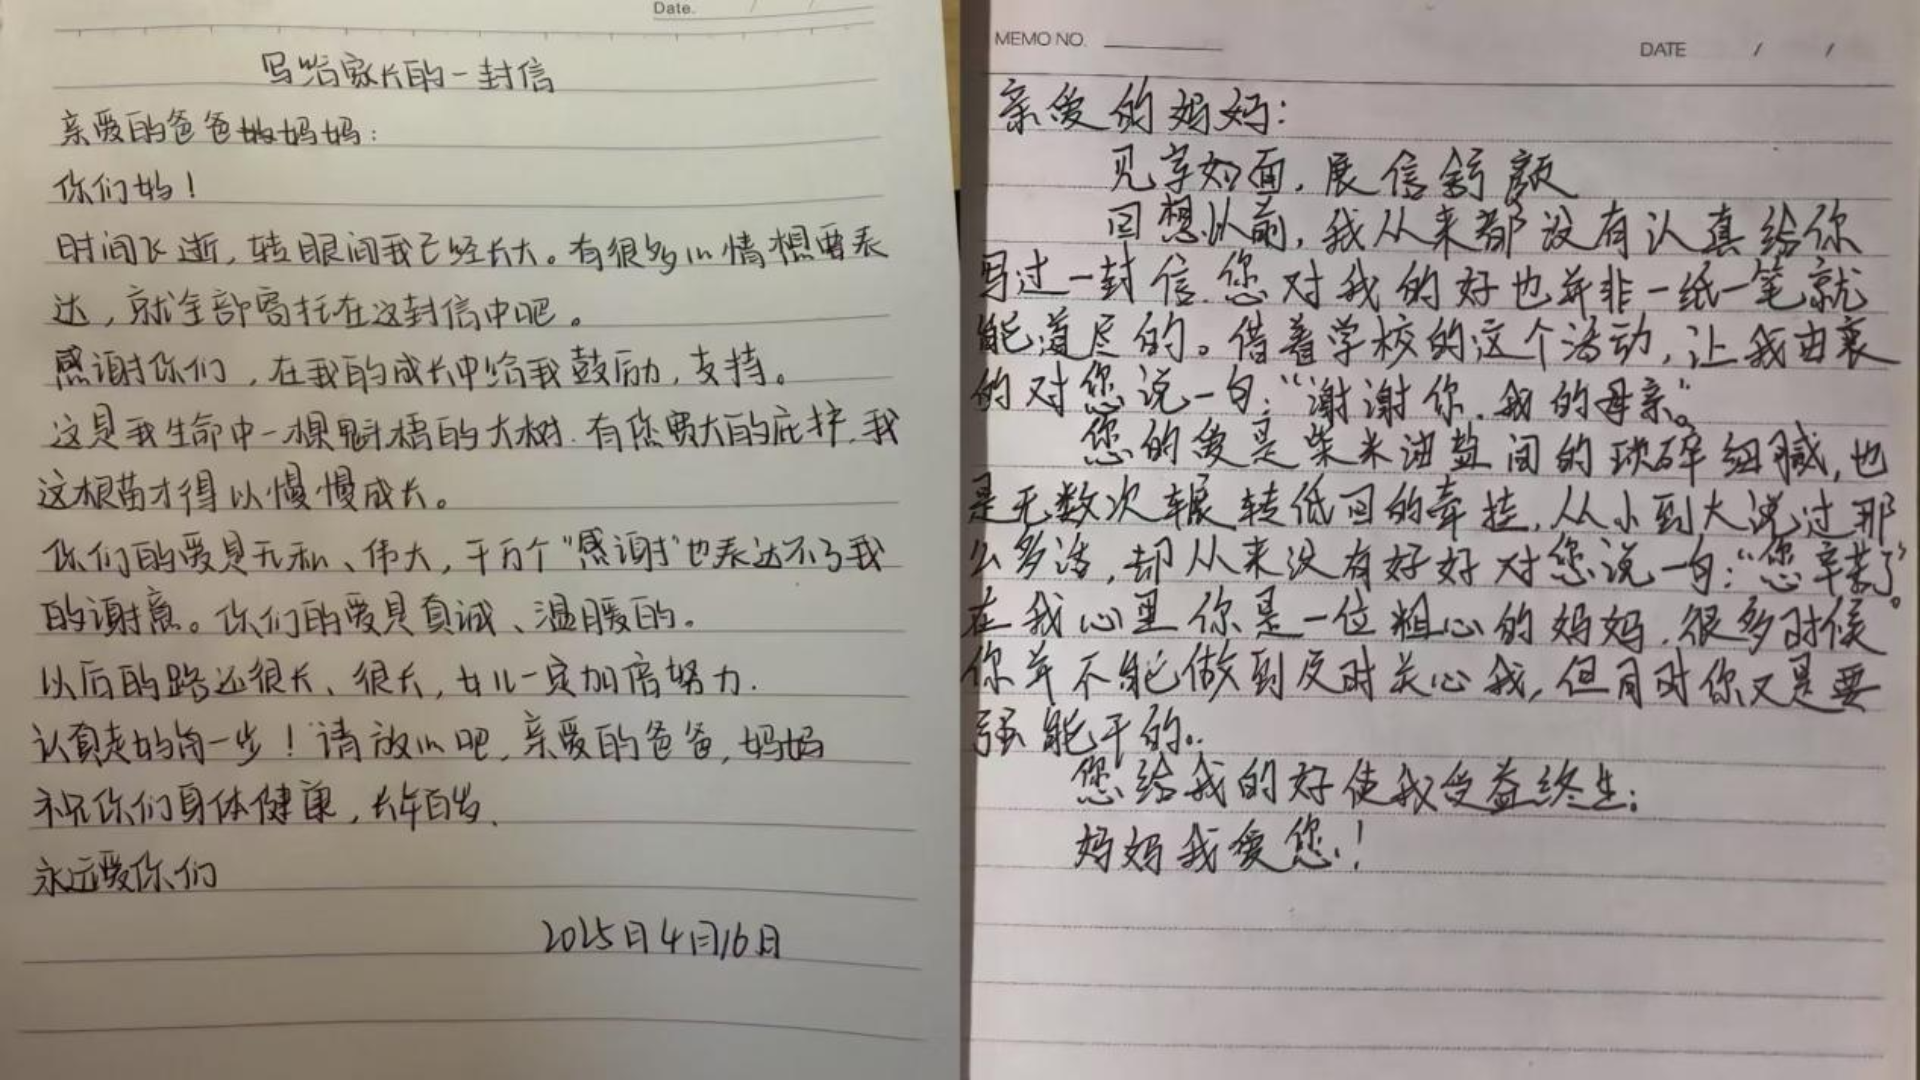 Date. / /
写给家长的一封信
亲爱的爸爸妈妈：
你们好！
时间飞逝，转眼间我已经长大。有很多心情想要表
达，就全部寄托在这封信中吧。
感谢你们，在我的成长中给我鼓励，支持。
这是我生命中一棵魁梧的大树．有您宽大的庇护，我
这根苗才得以慢慢成长。
你们的爱是无私、伟大，千万个“感谢”也表达不了我
的谢意。你们的爱是真诚、温暖的。
以后的路还很长、很长，女儿一定加倍努力．
认真走好每一步！请放心吧，亲爱的爸爸，妈妈
祝你们身体健康，长年百岁．
永远爱你们
2025日4月16日
MEMO NO.
DATE / /
亲爱的妈妈：
见字如面，展信舒颜
回想以前，我从来都没有认真给你
写过一封信．您对我的好也并非一纸一笔就
能道尽的。借着学校的这个活动，让我由衷
的对您说一句：“谢谢你，我的母亲”。
您的爱是柴米油盐间的琐碎细腻，也
是无数次辗转低回的牵挂，从小到大说过那
么多话，却从来没有好好对您说一句：“您辛苦了”。
在我心里你是一位粗心的妈妈，很多时候
你并不能做到及时关心我，但同时你又是要
强能干的．
您给我的好使我受益终生；
妈妈我爱您！